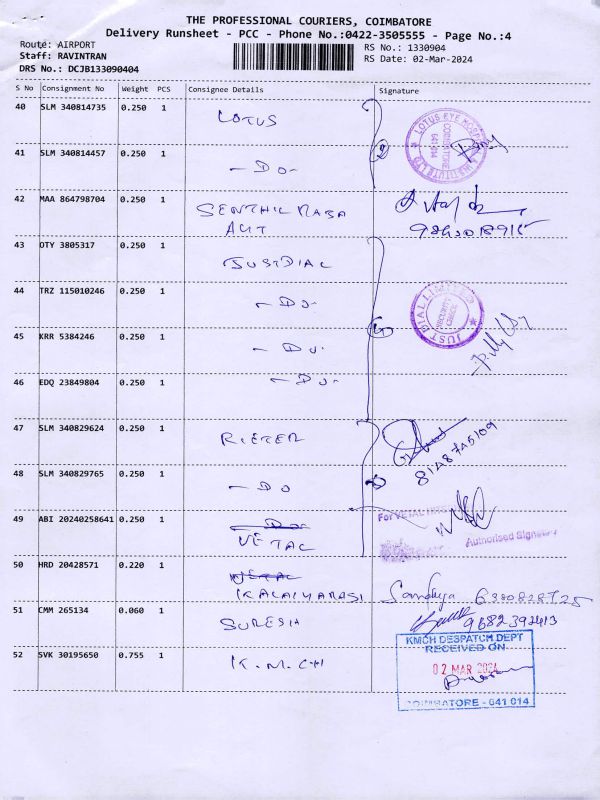 THE PROFESSIONAL COURIERS, COIMBATORE
Delivery Runsheet - PCC - Phone No.:0422-3505555 - Page No.:4
Route: AIRPORT
Staff: RAVINTRAN
DRS No.: DCJB133090404
RS No.: 1330904
RS Date: 02-Mar-2024
S No Consignment No Weight PCS Consignee Details Signature
40 SLM 340814735 0.250 1 LOTUS
LOTUS EYE HOSPITAL & INSTITUTE LTD
COIMBATORE
641 014
41 SLM 340814457 0.250 1 -DO-
42 MAA 864798704 0.250 1 SENTHIL
43 OTY 3805317 0.250 1 JUSTDIAL
44 TRZ 115010246 0.250 1 -DO-
JUST DIAL LIMITED
45 KRR 5384246 0.250 1 -DO-
46 EDQ 23849804 0.250 1 -DO-
47 SLM 340829624 0.250 1 RIETER
48 SLM 340829765 0.250 1 -DO
49 ABI 20240258641 0.250 1 -DO-
VETAL
For VETAL
Authorised
50 HRD 20428571 0.220 1 VETAL
KALAIYARASI Sandhya
51 CMM 265134 0.060 1 SURESH
52 SVK 30195650 0.755 1 K.M.CH
KMCH DESPATCH DEPT
RECEIVED ON
02 MAR 2024
COIMBATORE - 641 014